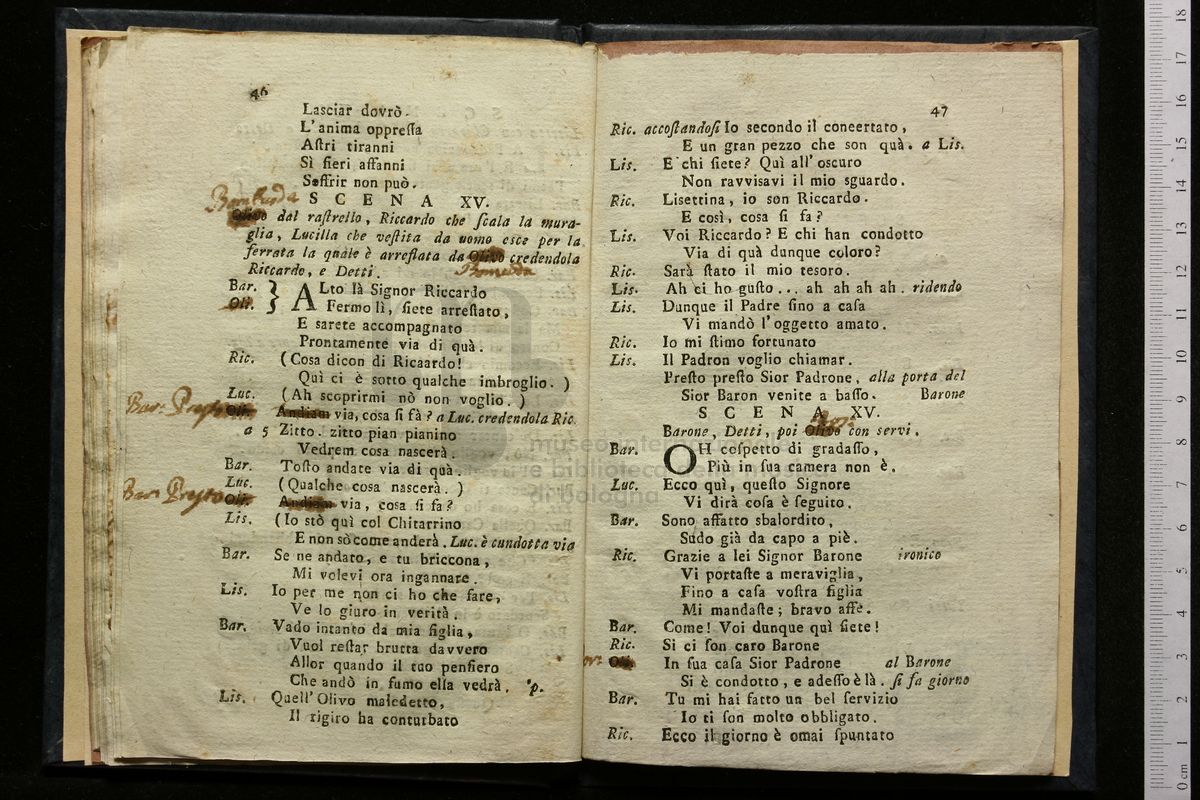 46
Lasciar dovrò.
L'anima oppreſſa
Aſtri tiranni
Sì fieri affanni
Soffrir non può.
SCENA XV.
Olivo dal raſtrello, Riccardo che ſcala la mura-
glia, Lucilla che veſtita da uomo esce per la
ferrata la quale è arreſtata da Olivo credendola
Riccardo, e Detti.
Bar. } ALto là Signor Riccardo
Oli. } Fermo lì, ſiete arreſtato,
E sarete accompagnato
Prontamente via di quà.
Ric. (Cosa dicon di Ricaardo!
Quì ci è sotto qualche imbroglio.)
Luc. (Ah scoprirmi nò non voglio.)
Bar: Presto
Oli. Andiam via, cosa ſi fà? a Luc. credendola Ric.
a 5 Zitto. zitto pian pianino
Vedrem cosa nascerà.
Bar. Toſto andate via di quà.
Luc. (Qualche cosa nascerà.)
Bar: Presto
Oli. Andiam via, cosa ſi fa?
Lis. (Io stò quì col Chitarrino
E non sò come anderà. Luc. è cundotta via
Bar. Se ne andato, e tu briccona,
Mi volevi ora ingannare.
Lis. Io per me non ci ho che fare,
Ve lo giuro in verità.
Bar. Vado intanto da mia figlia,
Vuol reſtar brutta davvero
Allor quando il tuo penſiero
Che andò in fumo ella vedrà. 'p.
Lis. Quell' Olivo maledetto,
Il rigiro ha conturbato
47
Ric. accoſtandoſi Io secondo il coneertato,
E un gran pezzo che son quà. a Lis.
Lis. E chi ſiete? Quì all' oscuro
Non ravvisavi il mio sguardo.
Ric. Lisettina, io son Riccardo.
E così, cosa ſi fa?
Lis. Voi Riccardo? E chi han condotto
Via di quà dunque coloro?
Ric. Sarà ſtato il mio tesoro.
Lis. Ah ci ho guſto... ah ah ah ah. ridendo
Lis. Dunque il Padre ſino a caſa
Vi mandò l'oggetto amato.
Ric. Io mi ſtimo fortunato
Lis. Il Padron voglio chiamar.
Preſto preſto Sior Padrone, alla porta del
Sior Baron venite a baſſo. Barone
SCENA XV.
Barone, Detti, poi Olivo con servi.
Bar. OH coſpetto di gradaſſo,
Più in ſua camera non è.
Luc. Ecco quì, queſto Signore
Vi dirà coſa è ſeguito.
Bar. Sono affatto sbalordito,
Sudo già da capo a piè.
Ric. Grazie a lei Signor Barone ironico
Vi portaſte a meraviglia,
Fino a caſa voſtra figlia
Mi mandaſte; bravo affè.
Bar. Come! Voi dunque quì ſiete!
Ric. Si ci ſon caro Barone
Oli. In ſua caſa Sior Padrone al Barone
Si è condotto, e adeſſo è là. ſi fa giorno
Bar. Tu mi hai fatto un bel ſervizio
Io ti ſon molto obbligato.
Ric. Ecco il giorno è omai ſpuntato
museo internazionale
e biblioteca della musica
di bologna